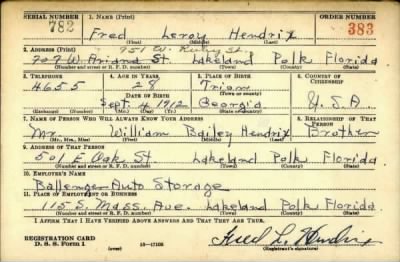 SERIAL NUMBER 1. NAME (Print) ORDER NUMBER
782 Fred Leroy Hendrix 383
(First) (Middle) (Last)
2. ADDRESS (Print) 751 W. St.
707 W. Ariana St. Lakeland Polk Florida
(Number and street or R. F. D. number) (Town) (County) (State)
3. TELEPHONE 4. AGE IN YEARS 5. PLACE OF BIRTH 6. COUNTRY OF CITIZENSHIP
4655 28 Trion
DATE OF BIRTH (Town or county)
Sept. 4 1912 Georgia U.S.A.
(Exchange) (Number) (Mo.) (Day) (Yr.) (State or country)
7. NAME OF PERSON WHO WILL ALWAYS KNOW YOUR ADDRESS 8. RELATIONSHIP OF THAT PERSON
Mr. William Bailey Hendrix Brother
(Mr., Mrs., Miss) (First) (Middle) (Last)
9. ADDRESS OF THAT PERSON
501 E Oak St. Lakeland Polk Florida
(Number and street or R. F. D. number) (Town) (County) (State)
10. EMPLOYER'S NAME
Ballenger Auto Storage
11. PLACE OF EMPLOYMENT OR BUSINESS
115 S. Mass. Ave. Lakeland Polk Florida
(Number and street or R. F. D. number) (Town) (County) (State)
I AFFIRM THAT I HAVE VERIFIED ABOVE ANSWERS AND THAT THEY ARE TRUE.
REGISTRATION CARD
D. S. S. Form 1 (over) 16—17105 Fred L. Hendrix
(Registrant's signature)